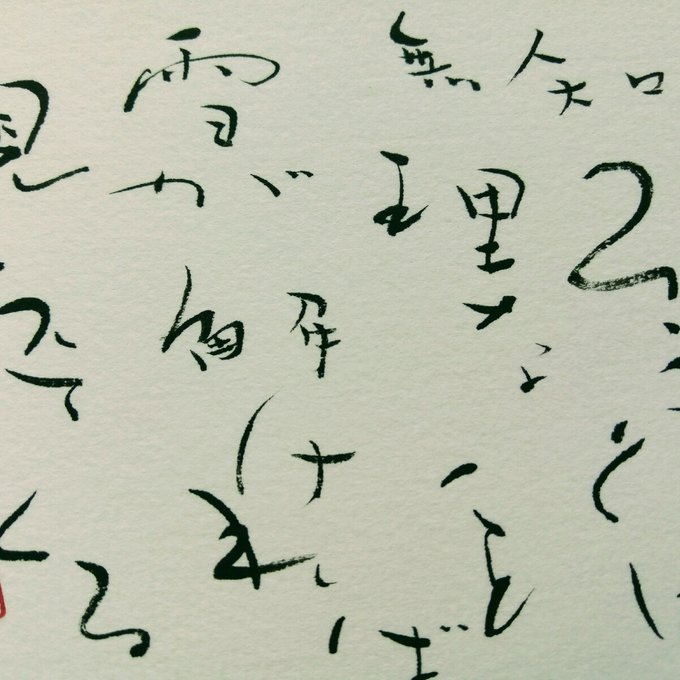 知ろうとは
無理なこと
雪が解ければ
見えてくる